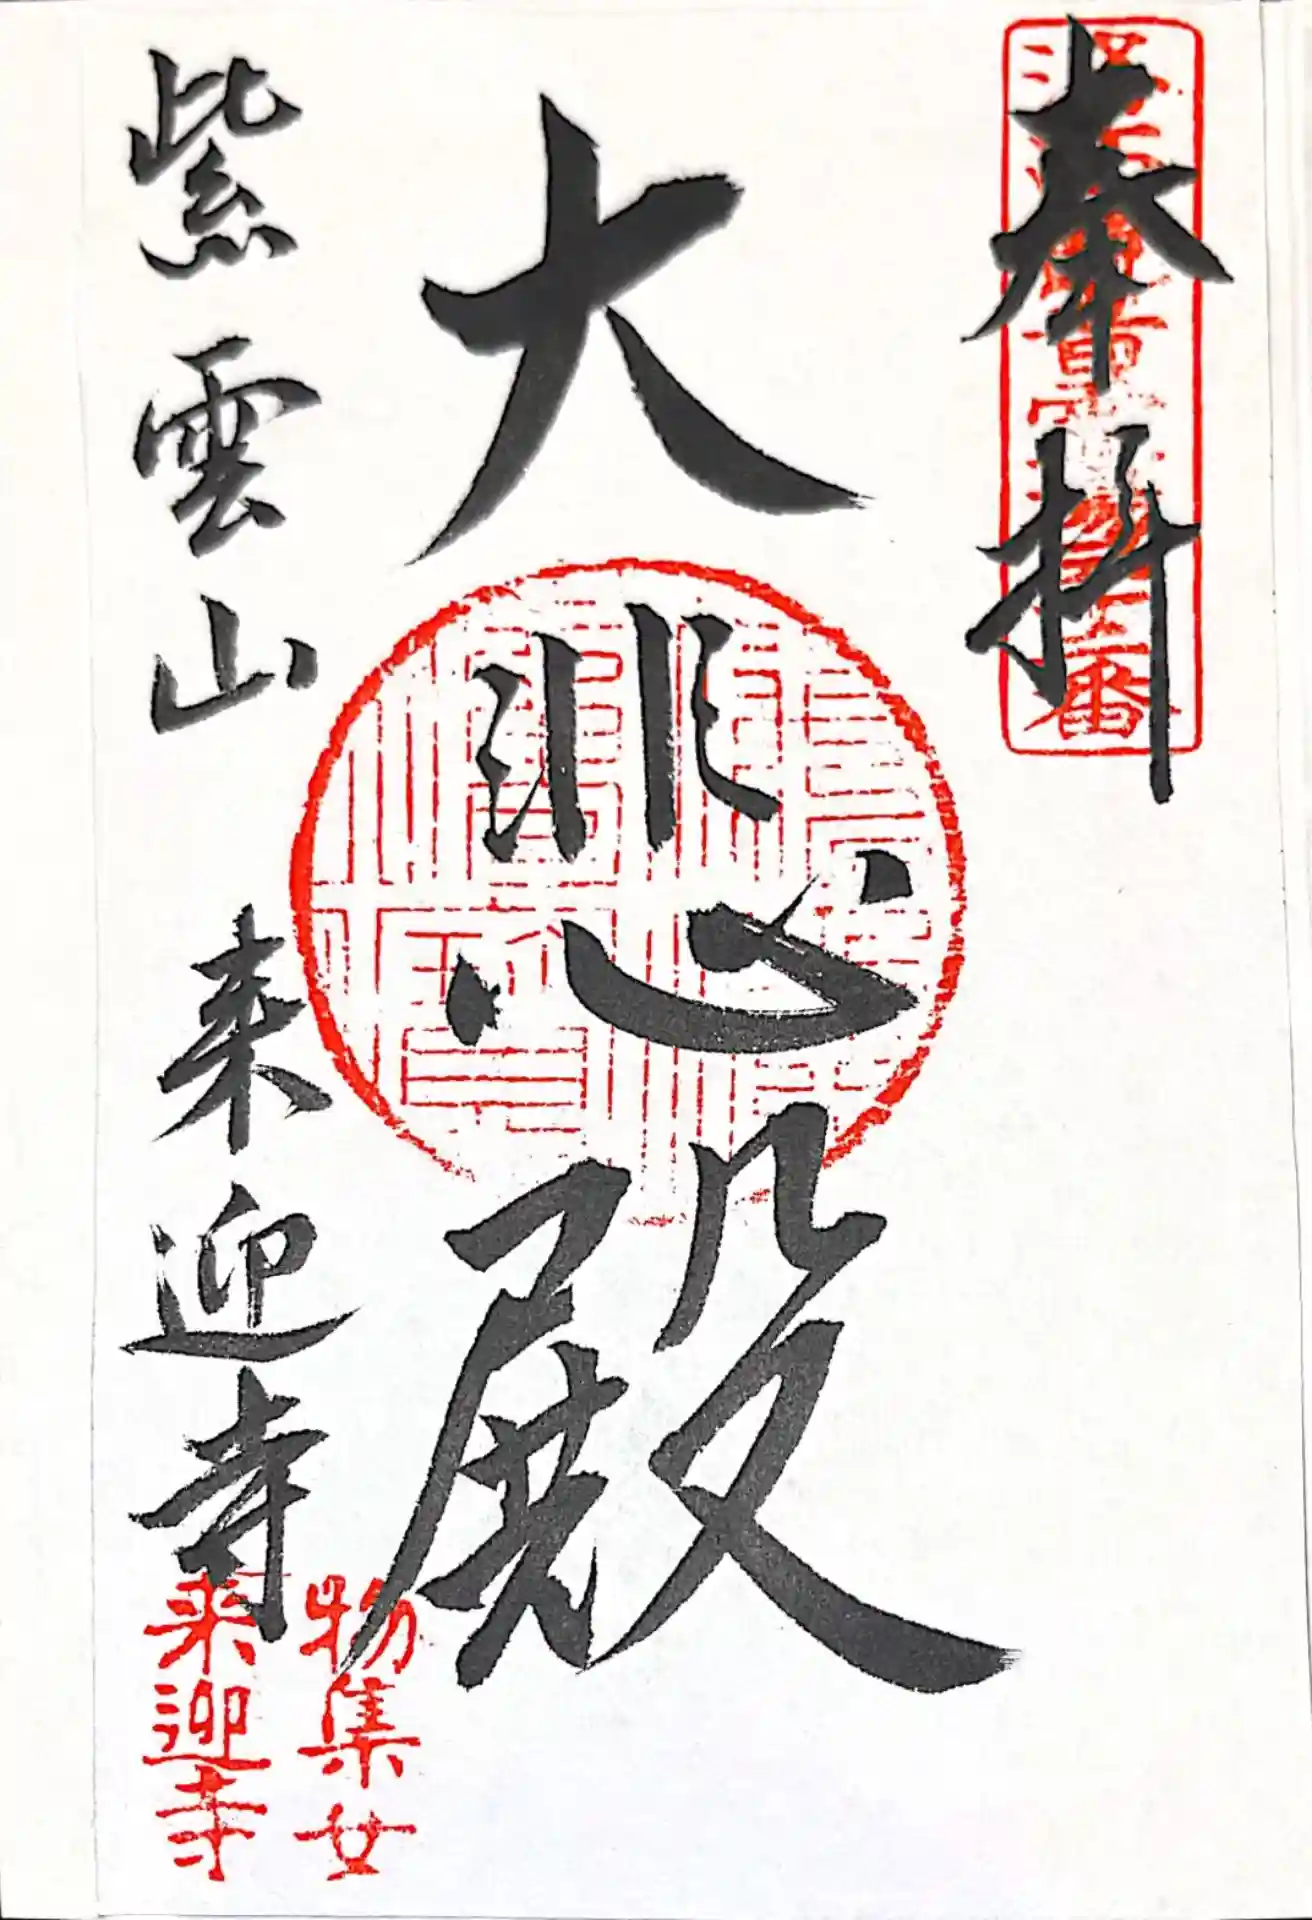 奉拝
大悲殿
紫雲山 来迎寺
物集女
来迎寺